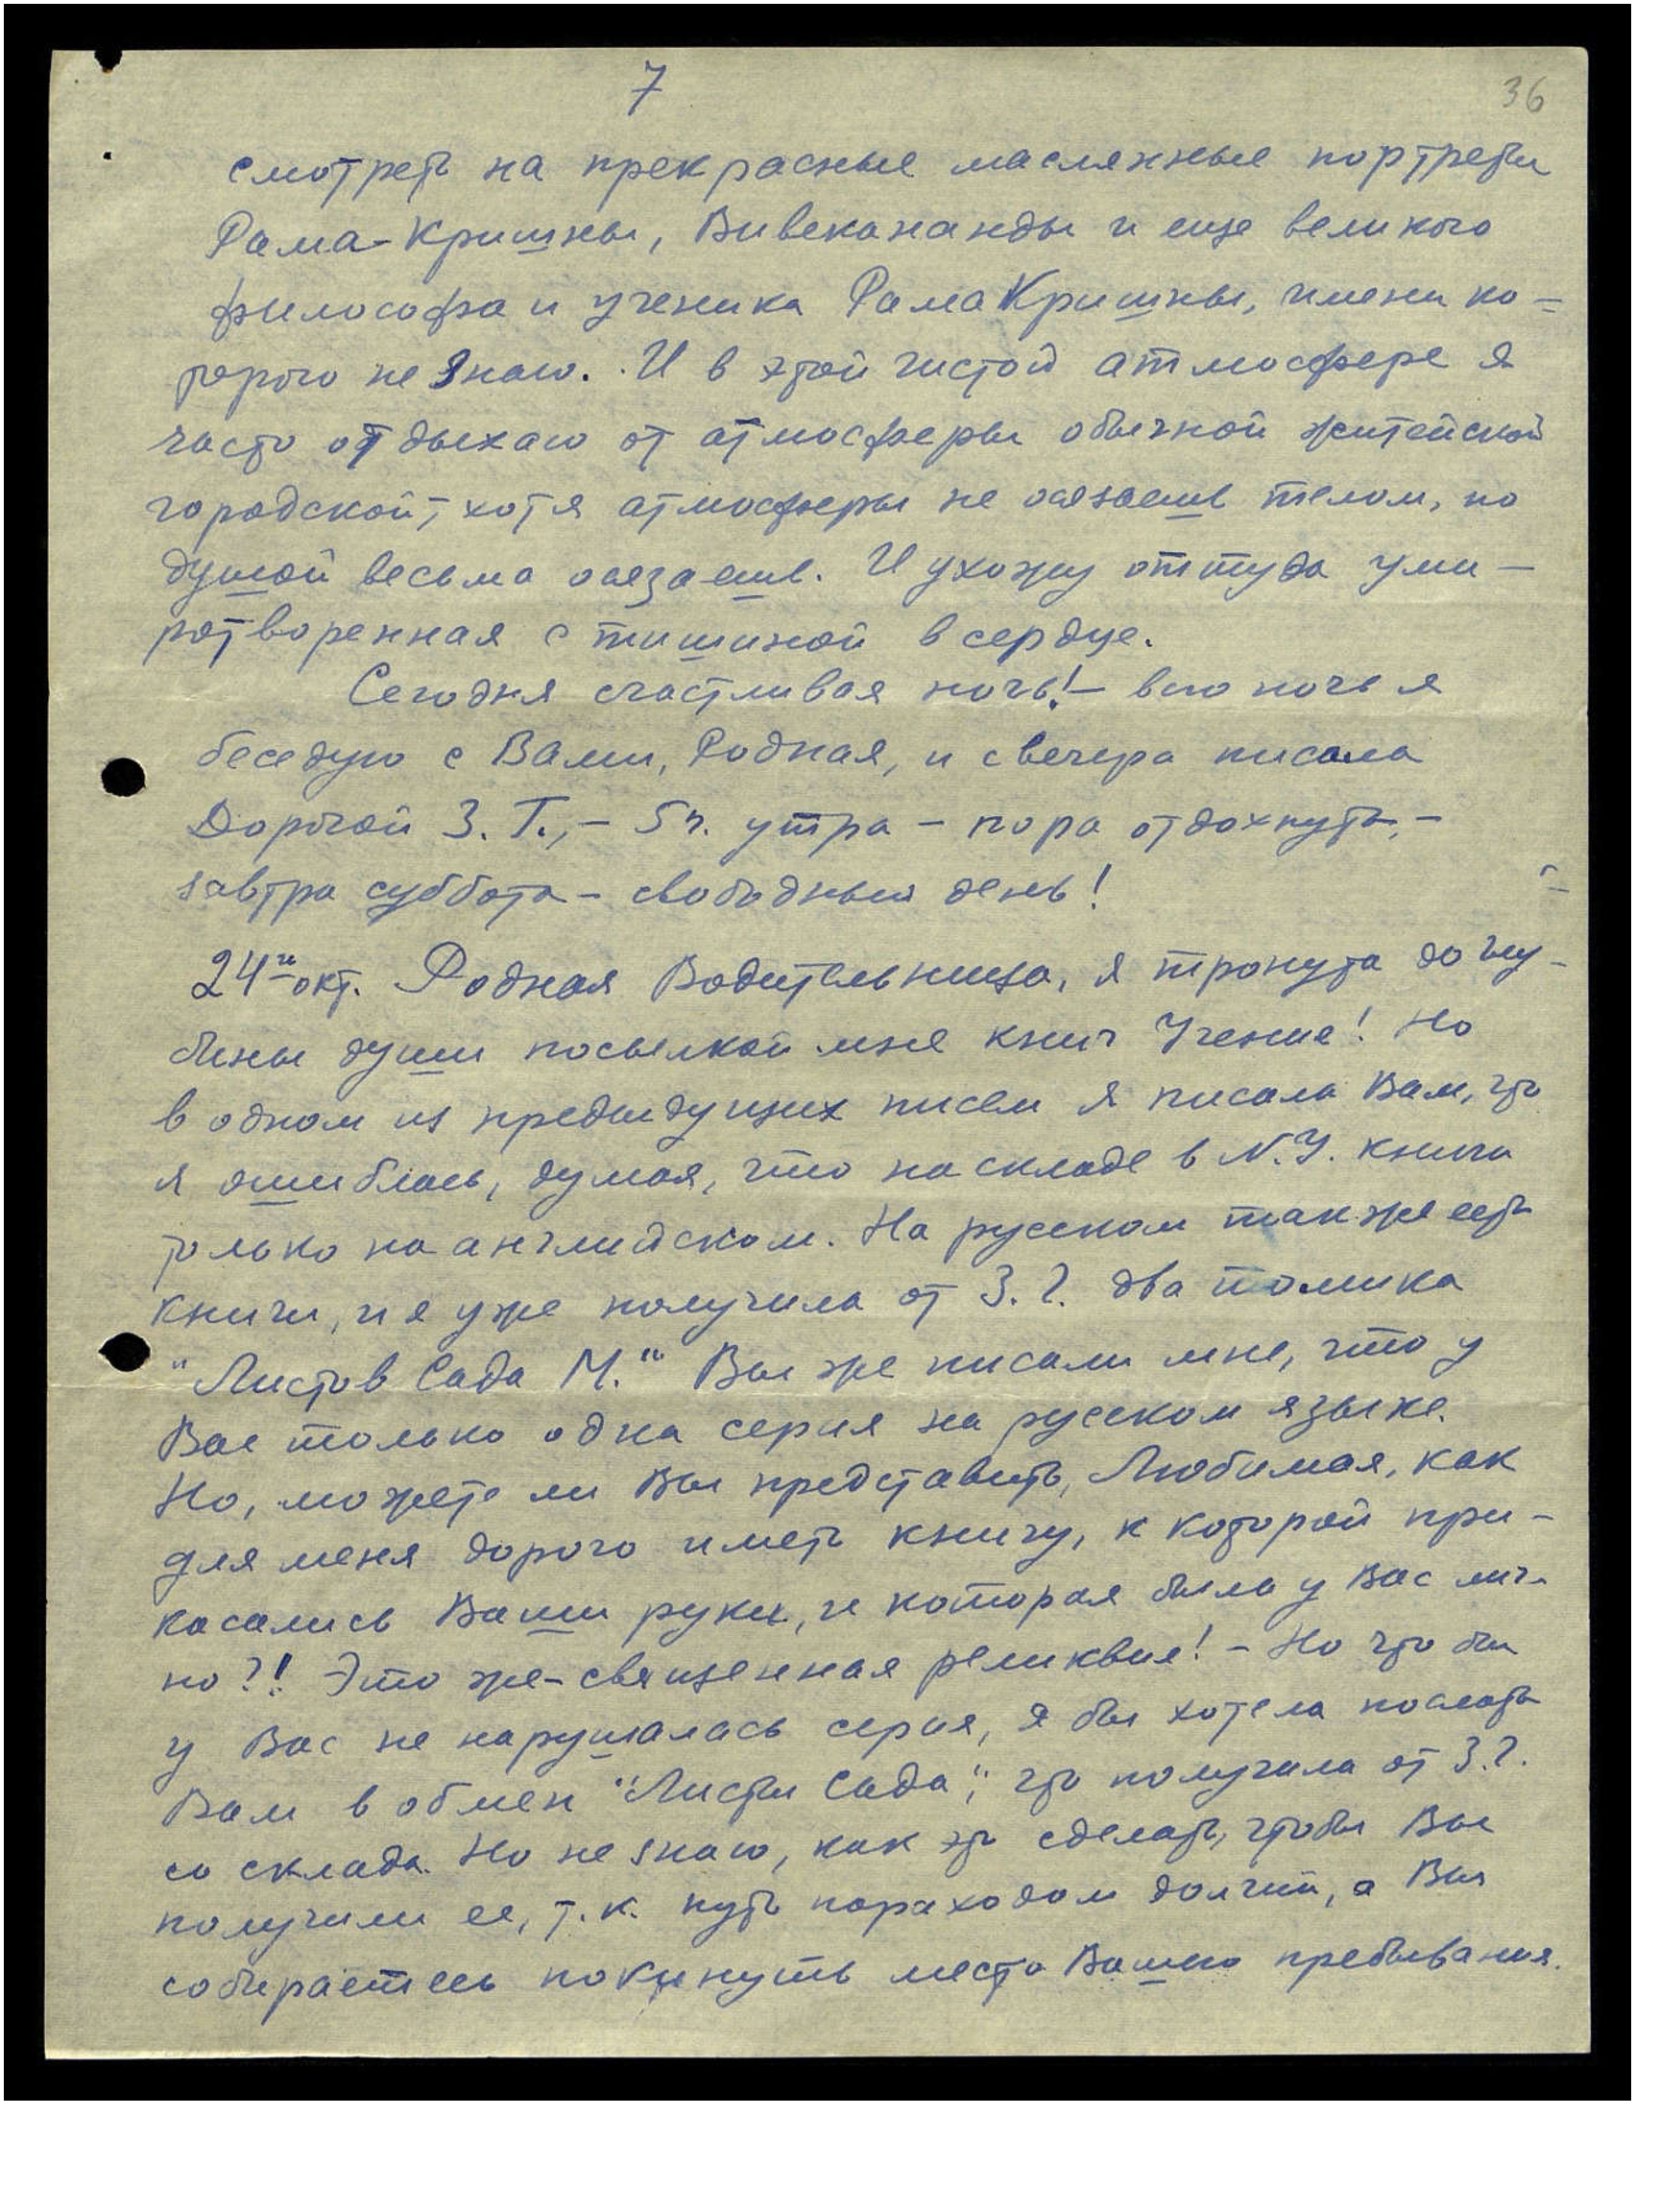 7
36
смотреть на прекрасные маслянные портреты
Рама-Кришны, Вивекананды и еще великого
философа и ученика РамаКришны, имени ко-
торого не знаю. И в этой чистой атмосфере я
часто отдыхаю от атмосферы обычной житейской
городской, хотя атмосферы не осязаешь телом, но
душой весьма осязаешь. И ухожу оттуда уми-
ротворенная с тишиной в сердце.
Сегодня счастливая ночь! – всю ночь я
беседую с Вами, Родная, и с вечера писала
Дорогой З. Г., – 5 ч. утра – пора отдохнуть, –
завтра суббота – свободный день!
24го окт. Родная Водительница, я тронута до глу-
бины души посылкой мне книг Учения! Но
в одном из предыдущих писем я писала Вам, что
я ошиблась, думая, что на складе в N.Y. книги
только на английском. На русском также есть
книги, и я уже получила от З. Г. два томика
"Листов Сада М." Вы же писали мне, что у
Вас только одна серия на русском языке.
Но, можете ли Вы представить, Любимая, как
для меня дорого иметь книгу, к которой при-
касались Ваши руки, и которая была у Вас лич-
но?! Это же – священная реликвия! – Но что бы
у Вас не нарушалась серия, я бы хотела послать
Вам в обмен "Листы Сада", что получила от З. Г.
со склада. Но не знаю, как это сделать, чтобы Вы
получили ее, т. к. путь пароходом долгий, а Вы
собираетесь покинуть место Вашего пребывания.